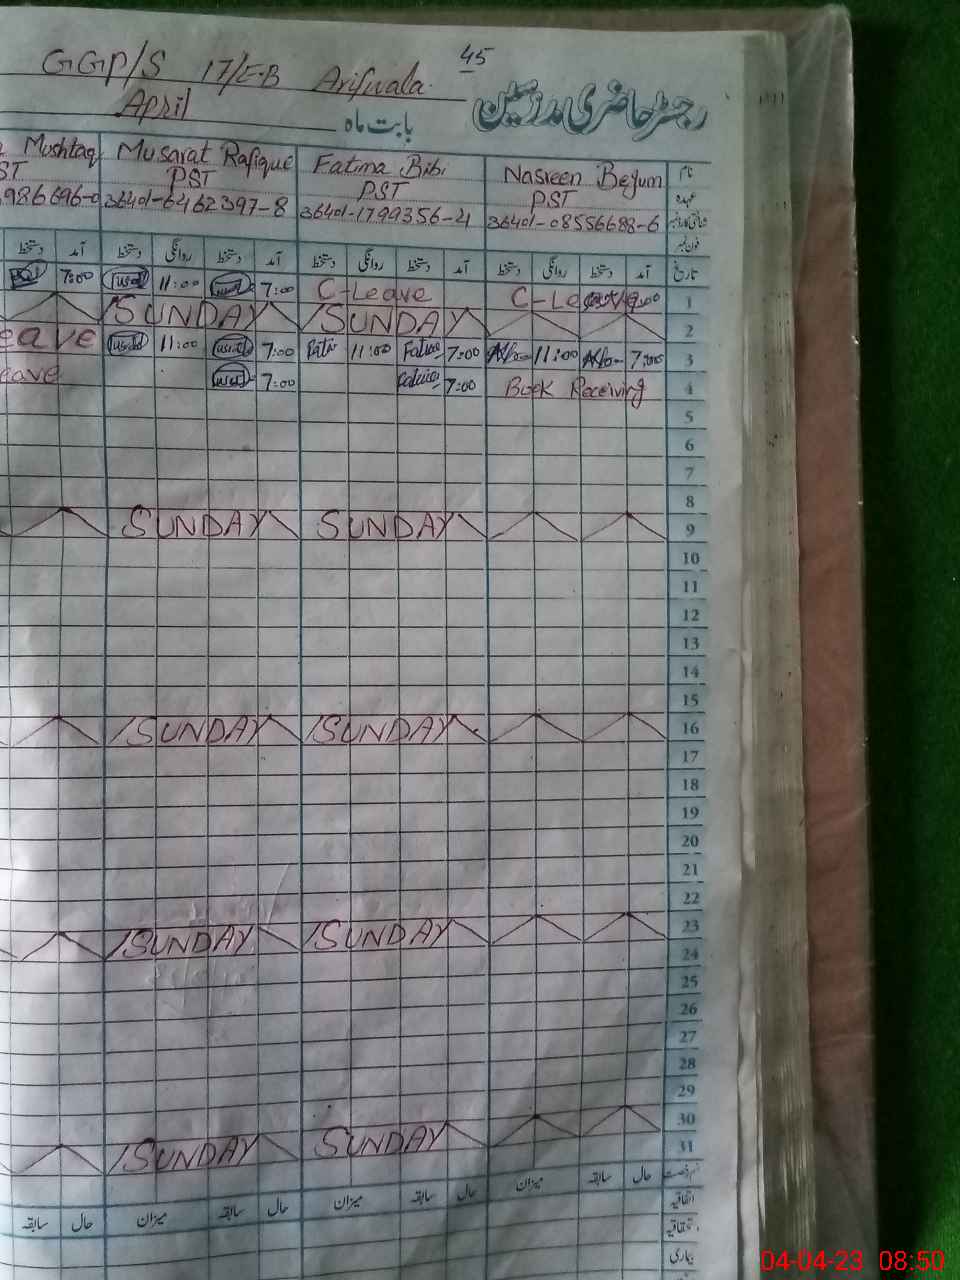 45
GGP/S 17/E-B Arifwala
رجسٹر حاضری مدرسین
April بابت ماہ
Mushtaq Musarat Rafique Fatima Bibi Nasreen Begum نام
PST PST PST عہدہ
986696-0 36401-6462397-8 36401-1799356-4 36401-08556688-6
فون نمبر
دستخط آمد دستخط روانگی دستخط آمد دستخط روانگی دستخط آمد دستخط روانگی دستخط آمد تاریخ
7:00 11:00 7:00 C-Leave C-Leave 1
SUNDAY SUNDAY 2
eave 11:00 7:00 11:00 Fatima 7:00 11:00 7:00 3
eave 7:00 Fatima 7:00 Book Receiving 4
5
6
7
8
SUNDAY SUNDAY 9
10
11
12
13
14
15
SUNDAY SUNDAY 16
17
18
19
20
21
22
SUNDAY SUNDAY 23
24
25
26
27
28
29
30
SUNDAY SUNDAY 31
سابقہ حال میزان سابقہ حال میزان سابقہ حال میزان سابقہ حال
اتفاقیہ
استحقاقیہ
بیماری
04-04-23 08:50